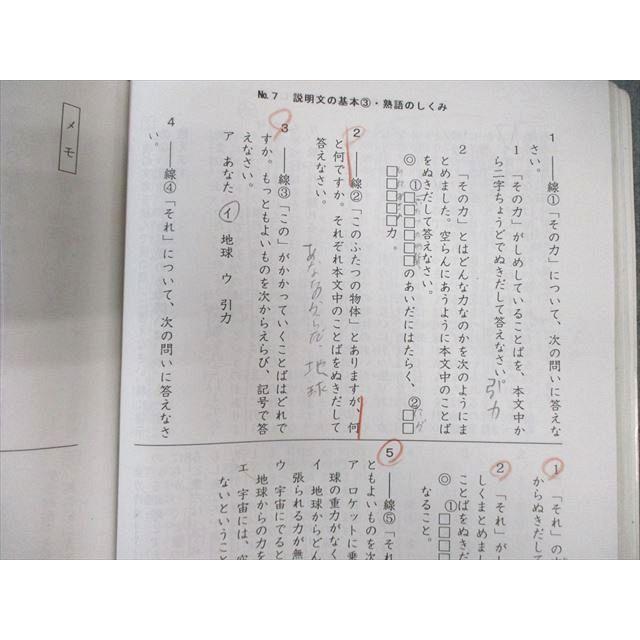 №7 説明文の基本③・熟語のしくみ
メモ
1 ――線①「その力」について、次の問いに答えな
さい。
1 「その力」がしめしていることばを、本文中か
ら二字ちょうどでぬきだして答えなさい。
引力
2 「その力」とはどんな力なのかを次のようにま
とめました。空らんにあうように本文中のことば
をぬきだして答えなさい。
◎ ①□□□□□□のあいだにはたらく、②□□
□□□□力。
2 ――線②「このふたつの物体」とありますが、何
と何ですか。それぞれ本文中のことばをぬきだして
答えなさい。
あなたのからだ・地球
3 ――線③「この」がかかっていくことばはどれで
すか。もっともよいものを次からえらび、記号で答
えなさい。
ア あなた イ 地球 ウ 引力
4 ――線④「それ」について、次の問いに答えなさ
い。
1 「それ」の
からぬきだして
2 「それ」が
しくまとめまし
ことばをぬきだ
◎ ①□□□□
なること。
5 ――線⑤「それ
ともよいものを次
ア ロケットに乗
球の重力がなく
イ 地球からどん
張られる力が無
ウ 宇宙にでると
地球からの力を
エ 宇宙には、空
ないということ